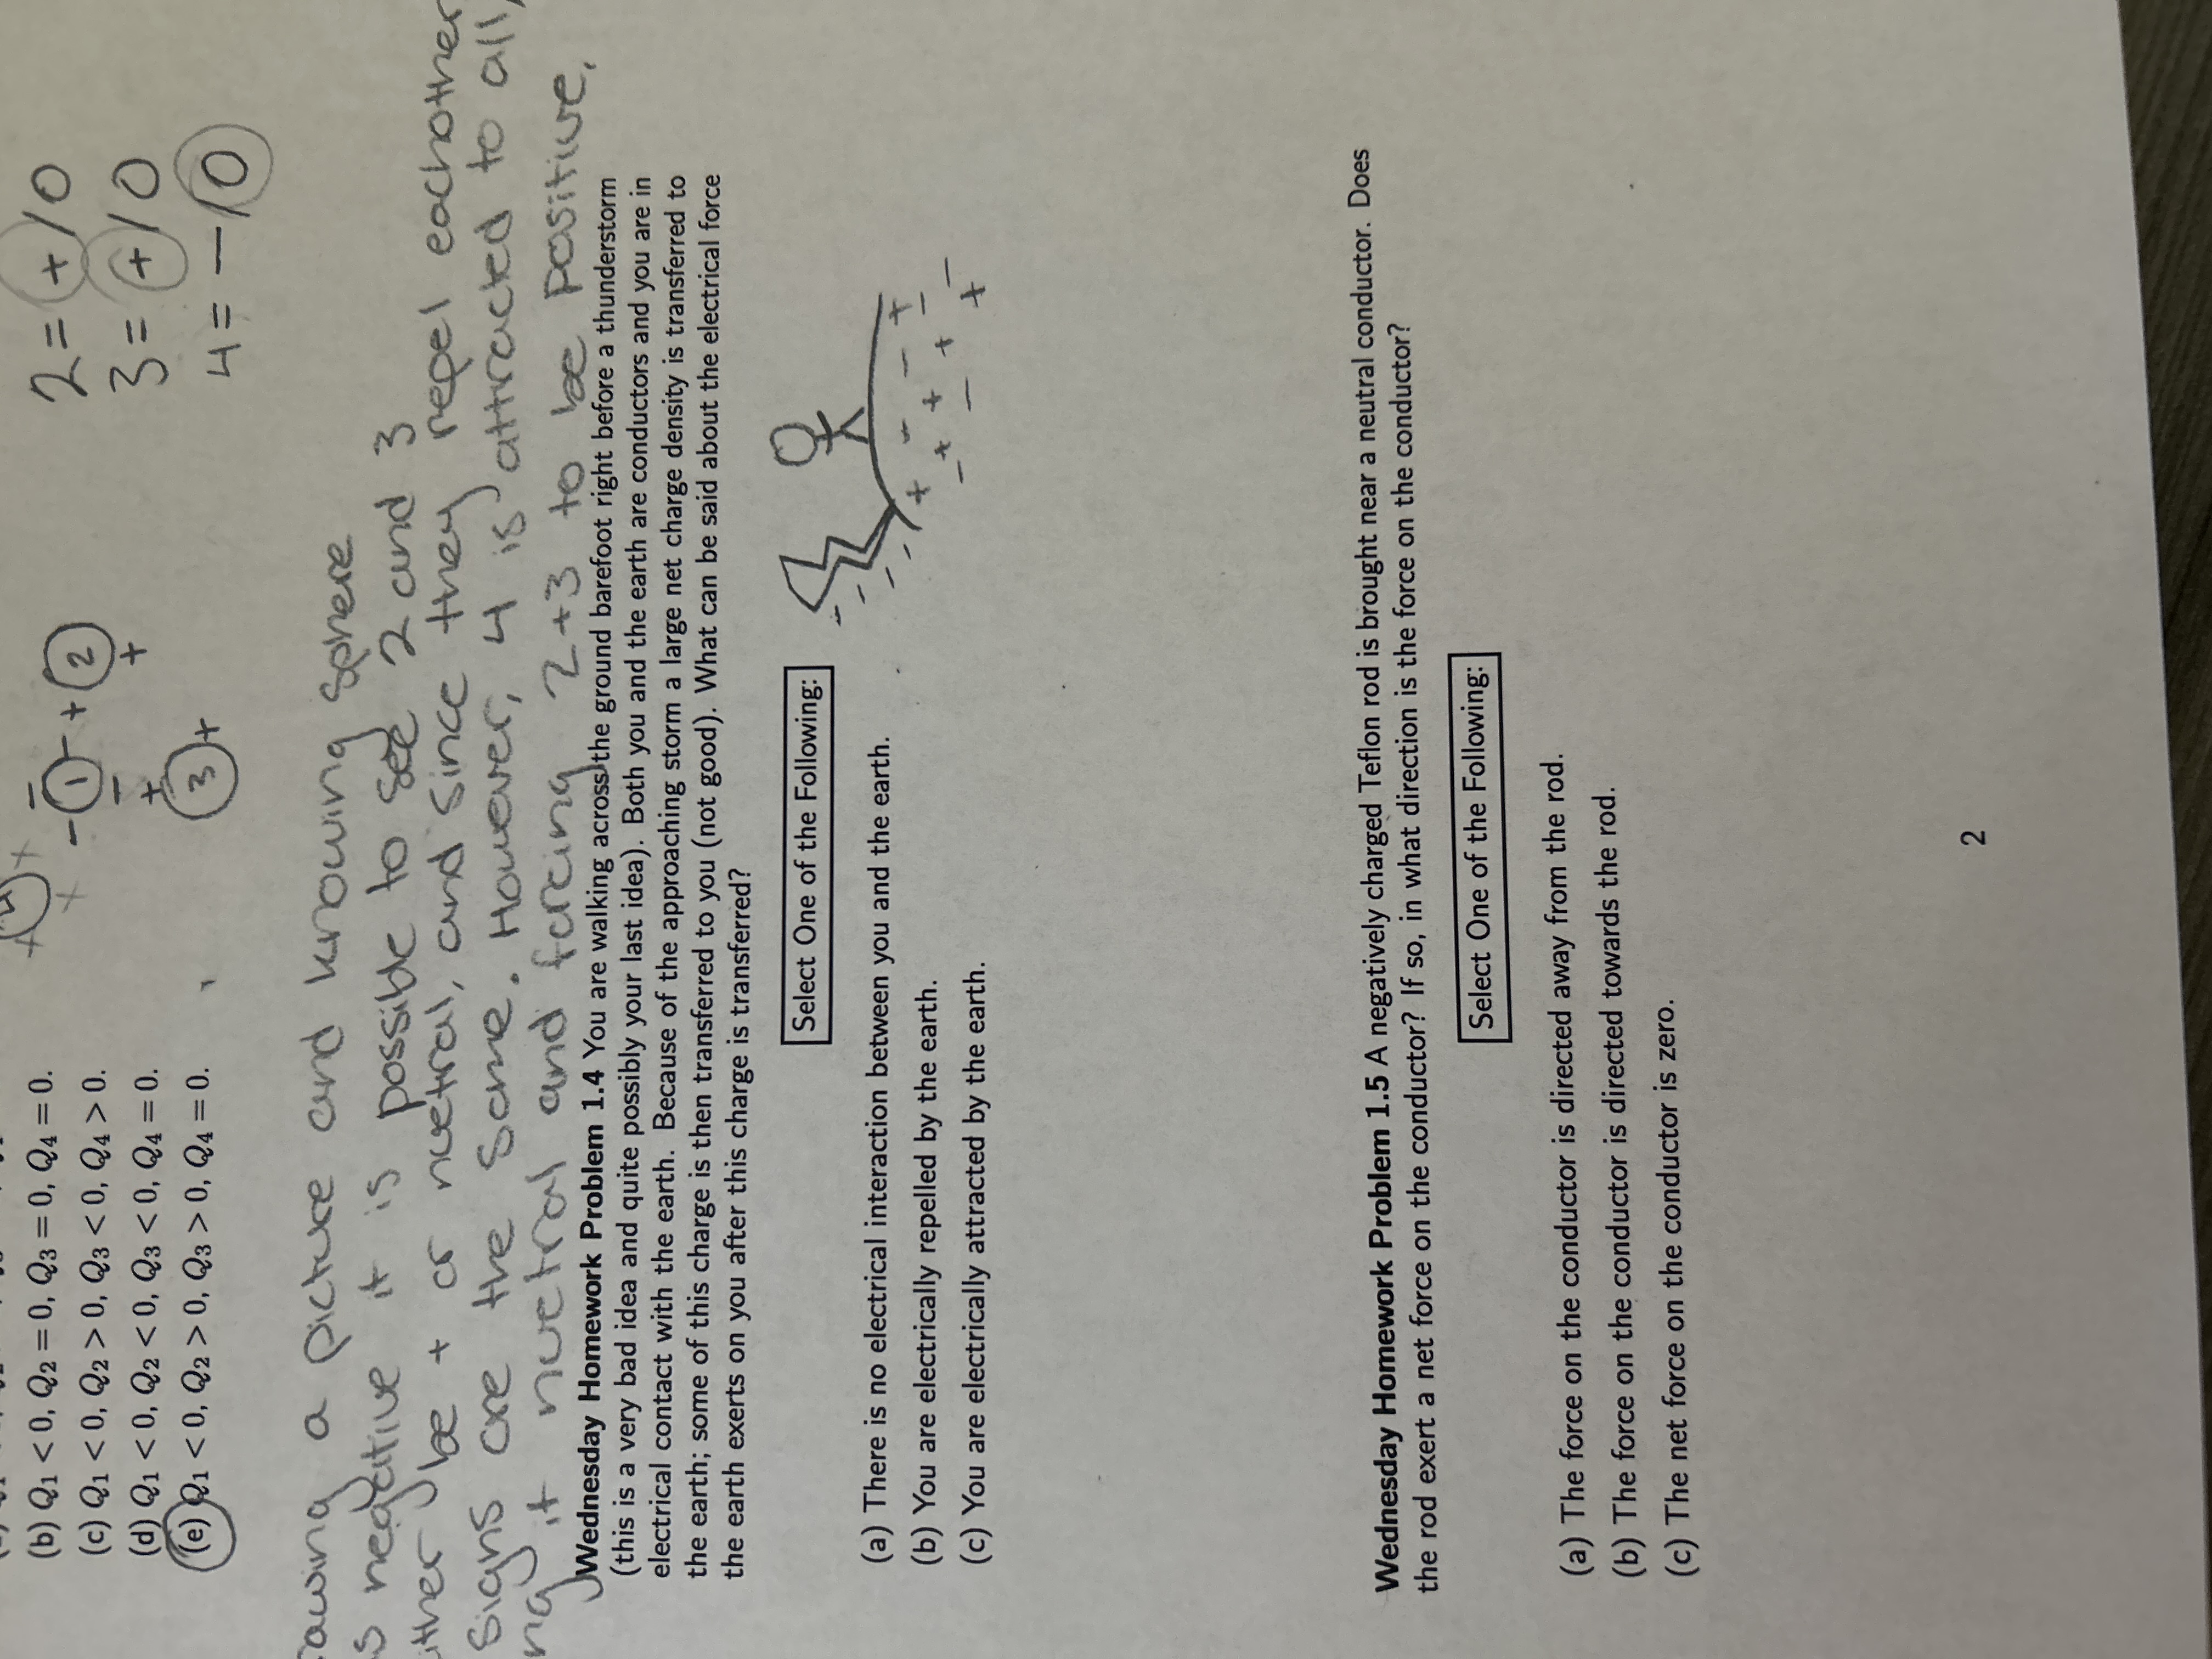 (b) Q1 < 0, Q2 = 0, Q3 = 0, Q4 = 0.
(c) Q1 < 0, Q2 > 0, Q3 < 0, Q4 > 0.
(d) Q1 < 0, Q2 < 0, Q3 < 0, Q4 = 0.
(e) Q1 < 0, Q2 > 0, Q3 > 0, Q4 = 0.
- 1 - + 2
+ 3 +
2 = + / 0
3 = + / 0
4 = - / 0
a picture and knowing sphere
negative it is possible to see 2 and 3
be + or nuetral, and since they repel eachother
signs are the same. However, 4 is attracted to all,
it nuetral and forcing 2+3 to be positive,
Wednesday Homework Problem 1.4 You are walking across the ground barefoot right before a thunderstorm
(this is a very bad idea and quite possibly your last idea). Both you and the earth are conductors and you are in
electrical contact with the earth. Because of the approaching storm a large net charge density is transferred to
the earth; some of this charge is then transferred to you (not good). What can be said about the electrical force
the earth exerts on you after this charge is transferred?
Select One of the Following:
(a) There is no electrical interaction between you and the earth.
(b) You are electrically repelled by the earth.
(c) You are electrically attracted by the earth.
Wednesday Homework Problem 1.5 A negatively charged Teflon rod is brought near a neutral conductor. Does
the rod exert a net force on the conductor? If so, in what direction is the force on the conductor?
Select One of the Following:
(a) The force on the conductor is directed away from the rod.
(b) The force on the conductor is directed towards the rod.
(c) The net force on the conductor is zero.
2